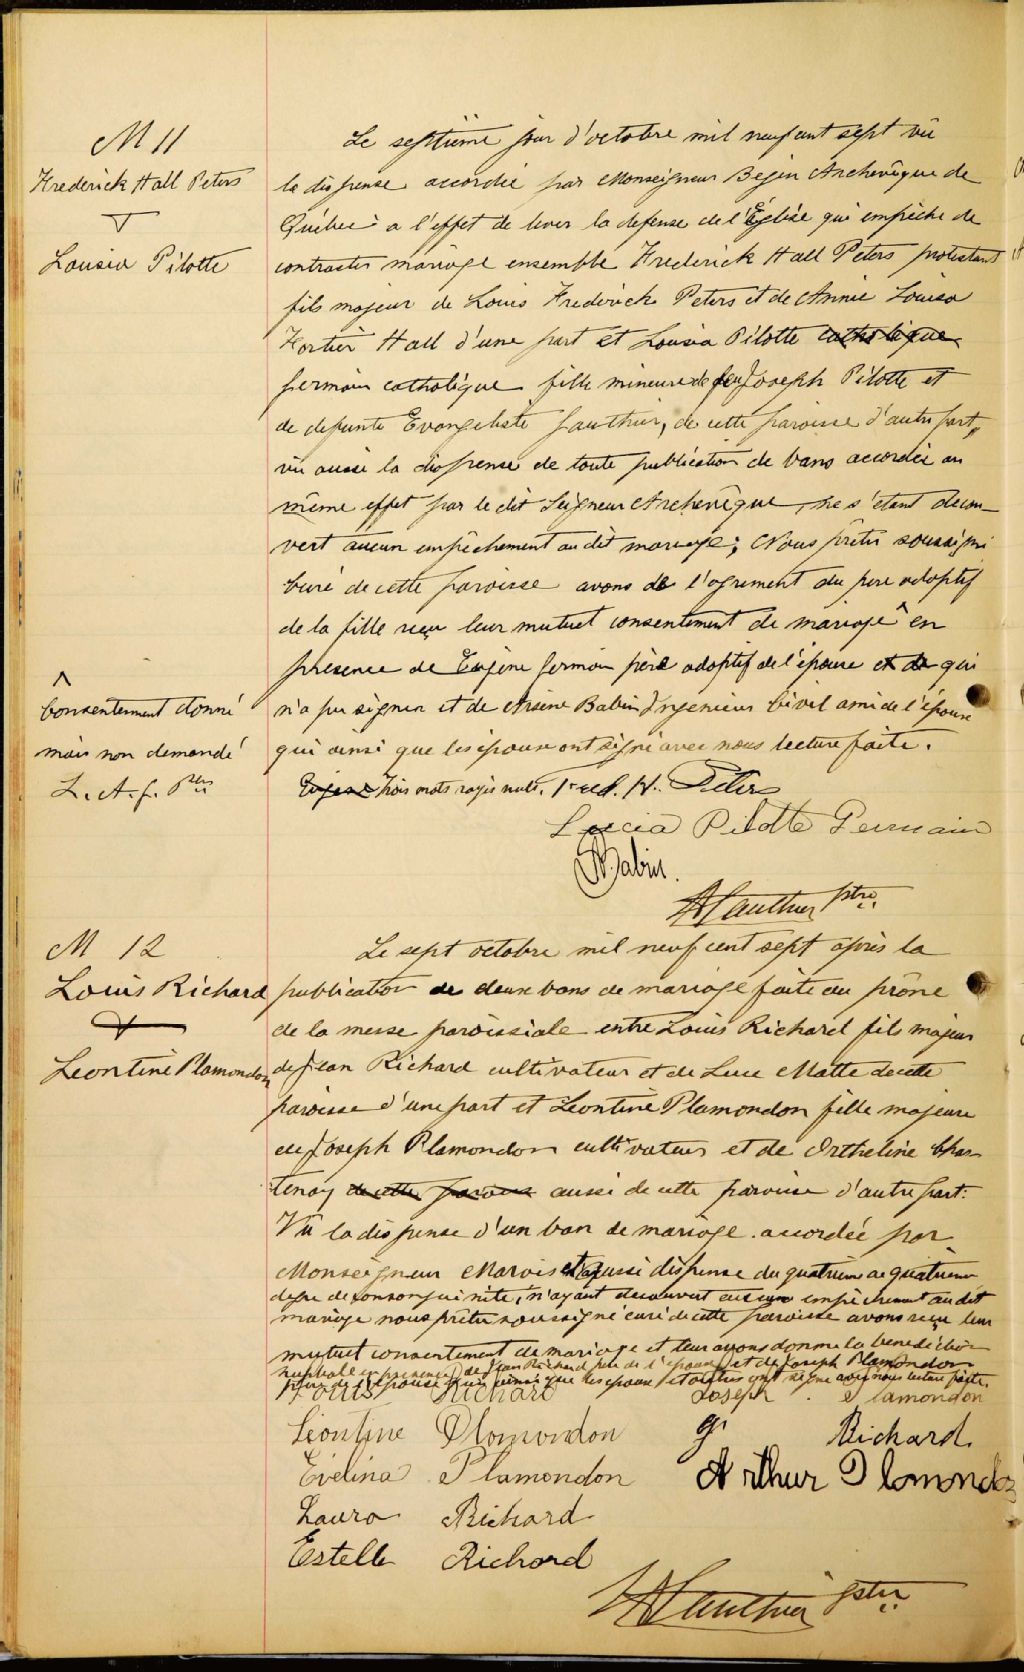 M 11
Frederick Hall Peters
&
Lousia Pilotte
Le septième jour d'octobre mil neuf cent sept vû
la dispense accordée par Monseigneur Begin Archevêque de
Québec a l'effet de lever la defense de l'Église qui empêche de
contracter mariage ensemble Frederick Hall Peters protestant
fils majeur de Louis Frederick Peters et de Annie Louisa
Fortier Hall d'une part et Lousia Pilotte catholique
Germain catholique fille mineure de feu Joseph Pilotte et
de defunte Evangeliste Gauthier, de cette paroisse d'autre part,
vu aussi la dispense de toute publication de bans accordée au
même effet par le dit Seigneur Archevêque, ne s'étant décou-
vert aucun empêchement au dit mariage; Nous prêtre soussigné
Curé de cette paroisse avons de l'agrement du pere adoptif
de la fille reçu leur mutuel consentement de mariage ^ en
presence de Eugène Germain père adoptif de l'épouse et de qui
n'a pu signer et de Arsène Babin Ingenieur Civil ami de l'épouse
qui ainsi que les époux ont signé avec nous lecture faite.
^
Consentement donné
mais non demandé
L. A. G. Ptre
Eugène Trois mots rayés nuls. Fred. H. Peters
Lucia Pilotte Germain
A Babin.
HA Gauthier ptre
M 12
Louis Richard
&
Leontine Plamondon
Le sept octobre mil neuf cent sept après la
publication de deux bans de mariage faite au prône
de la messe paroissiale entre Louis Richard fils majeur
de Jean Richard cultivateur et de Luce Matte de cette
paroisse d'une part et Leontine Plamondon fille majeure
de Joseph Plamondon cultivateur et de Ortheline Chas-
tenay de cette paroisse aussi de cette paroisse d'autre part:
Vu la dispense d'un ban de mariage accordée par
Monseigneur Marois et aussi dispense du quatrieme au quatrieme
degre de consanguinité, n'ayant decouvert aucun empêchement au dit
mariage nous prêtre soussigné curé de cette paroisse avons reçu leur
mutuel consentement de mariage et leur avons donne la benediction
nuptiale en presence de Jean Richard pere de l'epoux et de Joseph Plamondon
pere de l'epouse qui ainsi que les epoux et autres ont signe avec nous lecture faite.
Louis Richard Joseph Plamondon
Léontine Plamondon J Richard
Evelina Plamondon Arthur Plamondon
Laura Richard
Estelle Richard
HA Gauthier ptre